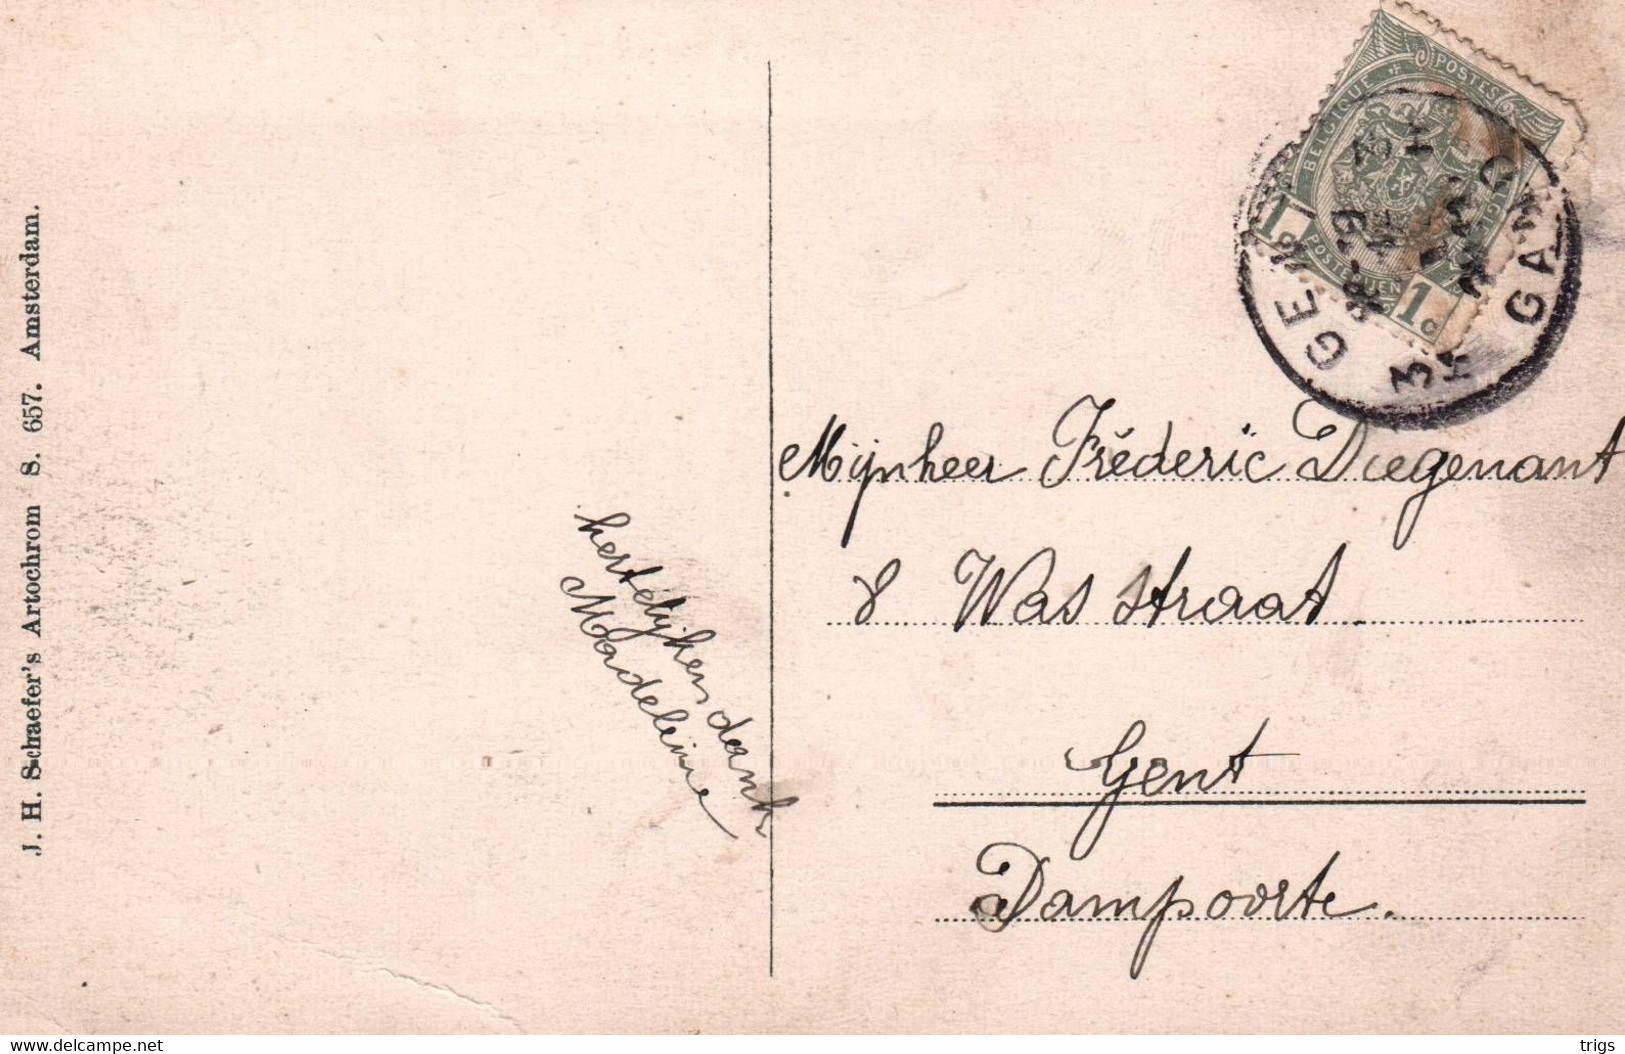 J. H. Schaefer's Artochrom S. 657. Amsterdam.
hertelijken dank
Madeleine
POSTES
BELGIQUE
1c
POSTERIJEN
1c
GENT
GAND
Mijnheer Fréderic Diegenant
8 Was straat
Gent
Dampoorte.
www.delcampe.net
trigs